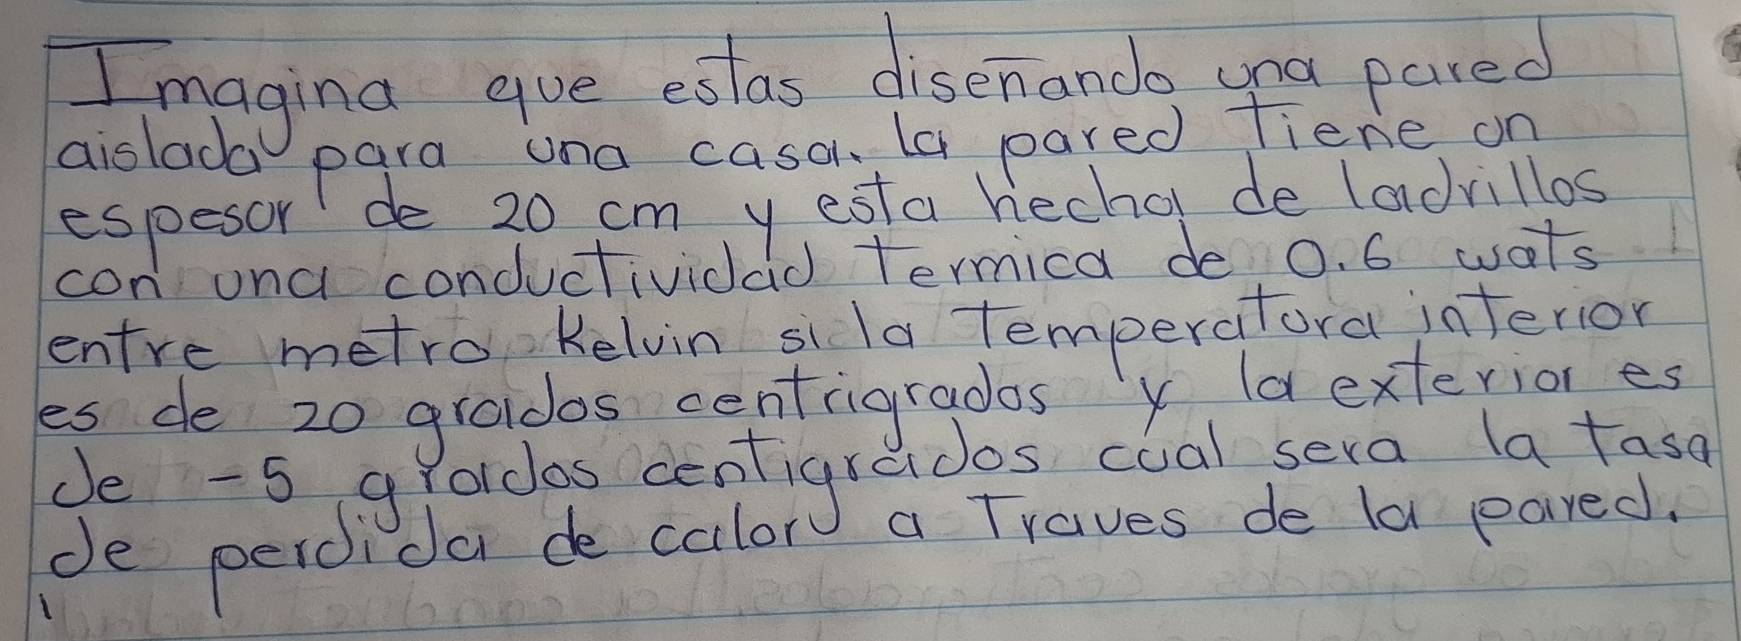 Imagina que estas diseñando una pared
aislada para una casa. la pared Tiene un
espesor de 20 cm y esta hecha de ladrillos
con una conductividad Termica de 0.6 wats
entre metro Kelvin si la Temperatura interior
es de 20 grados centrigrados y la exterior es
de -5 grados centigrados cual sera la tasa
de perdida de calor a Traves de la pared.